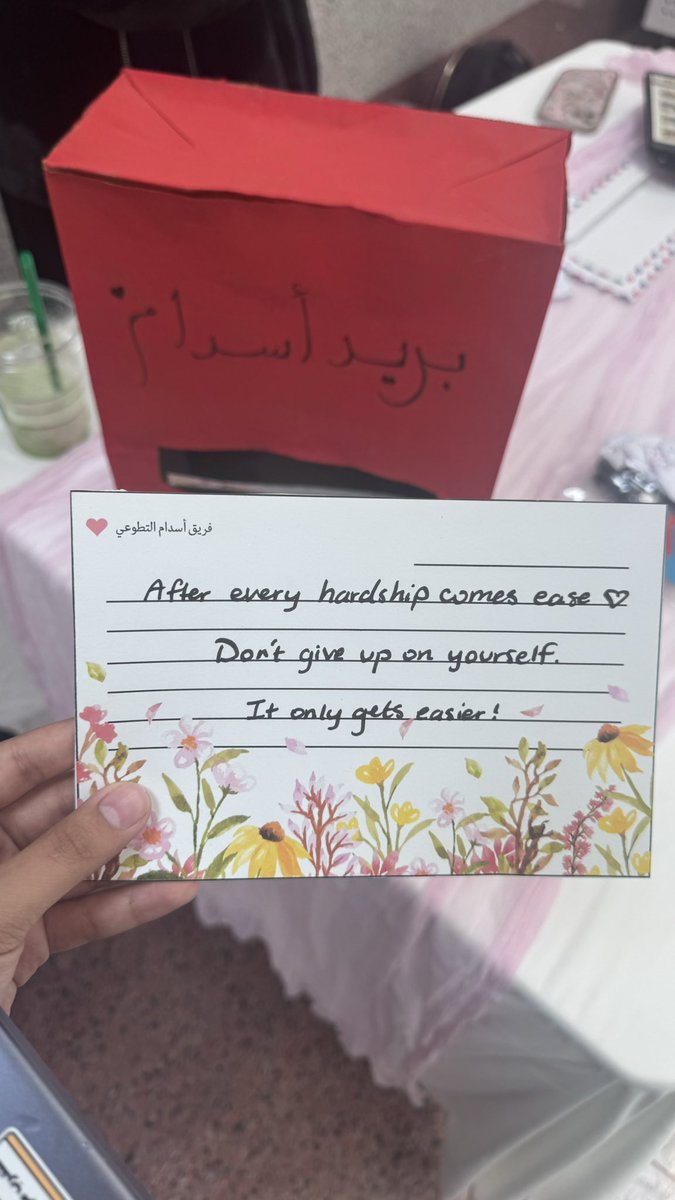 بريد أسدام
فريق أسدام التطوعي
After every hardship comes ease
Don't give up on yourself.
It only gets easier!